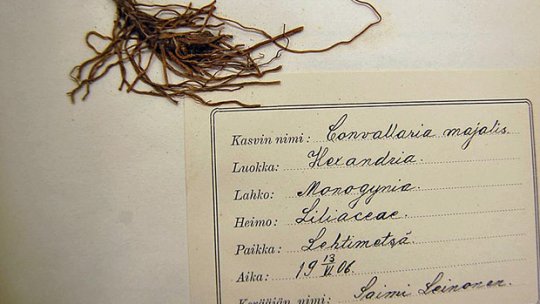 Kasvin nimi: Convallaria majalis.
Luokka: Hexandria.
Lahko: Monogynia.
Heimo: Liliaceae.
Paikka: Lehtimetsä
Aika: 19 13/VI 06.
Kerääjän nimi: Saimi Leinonen.